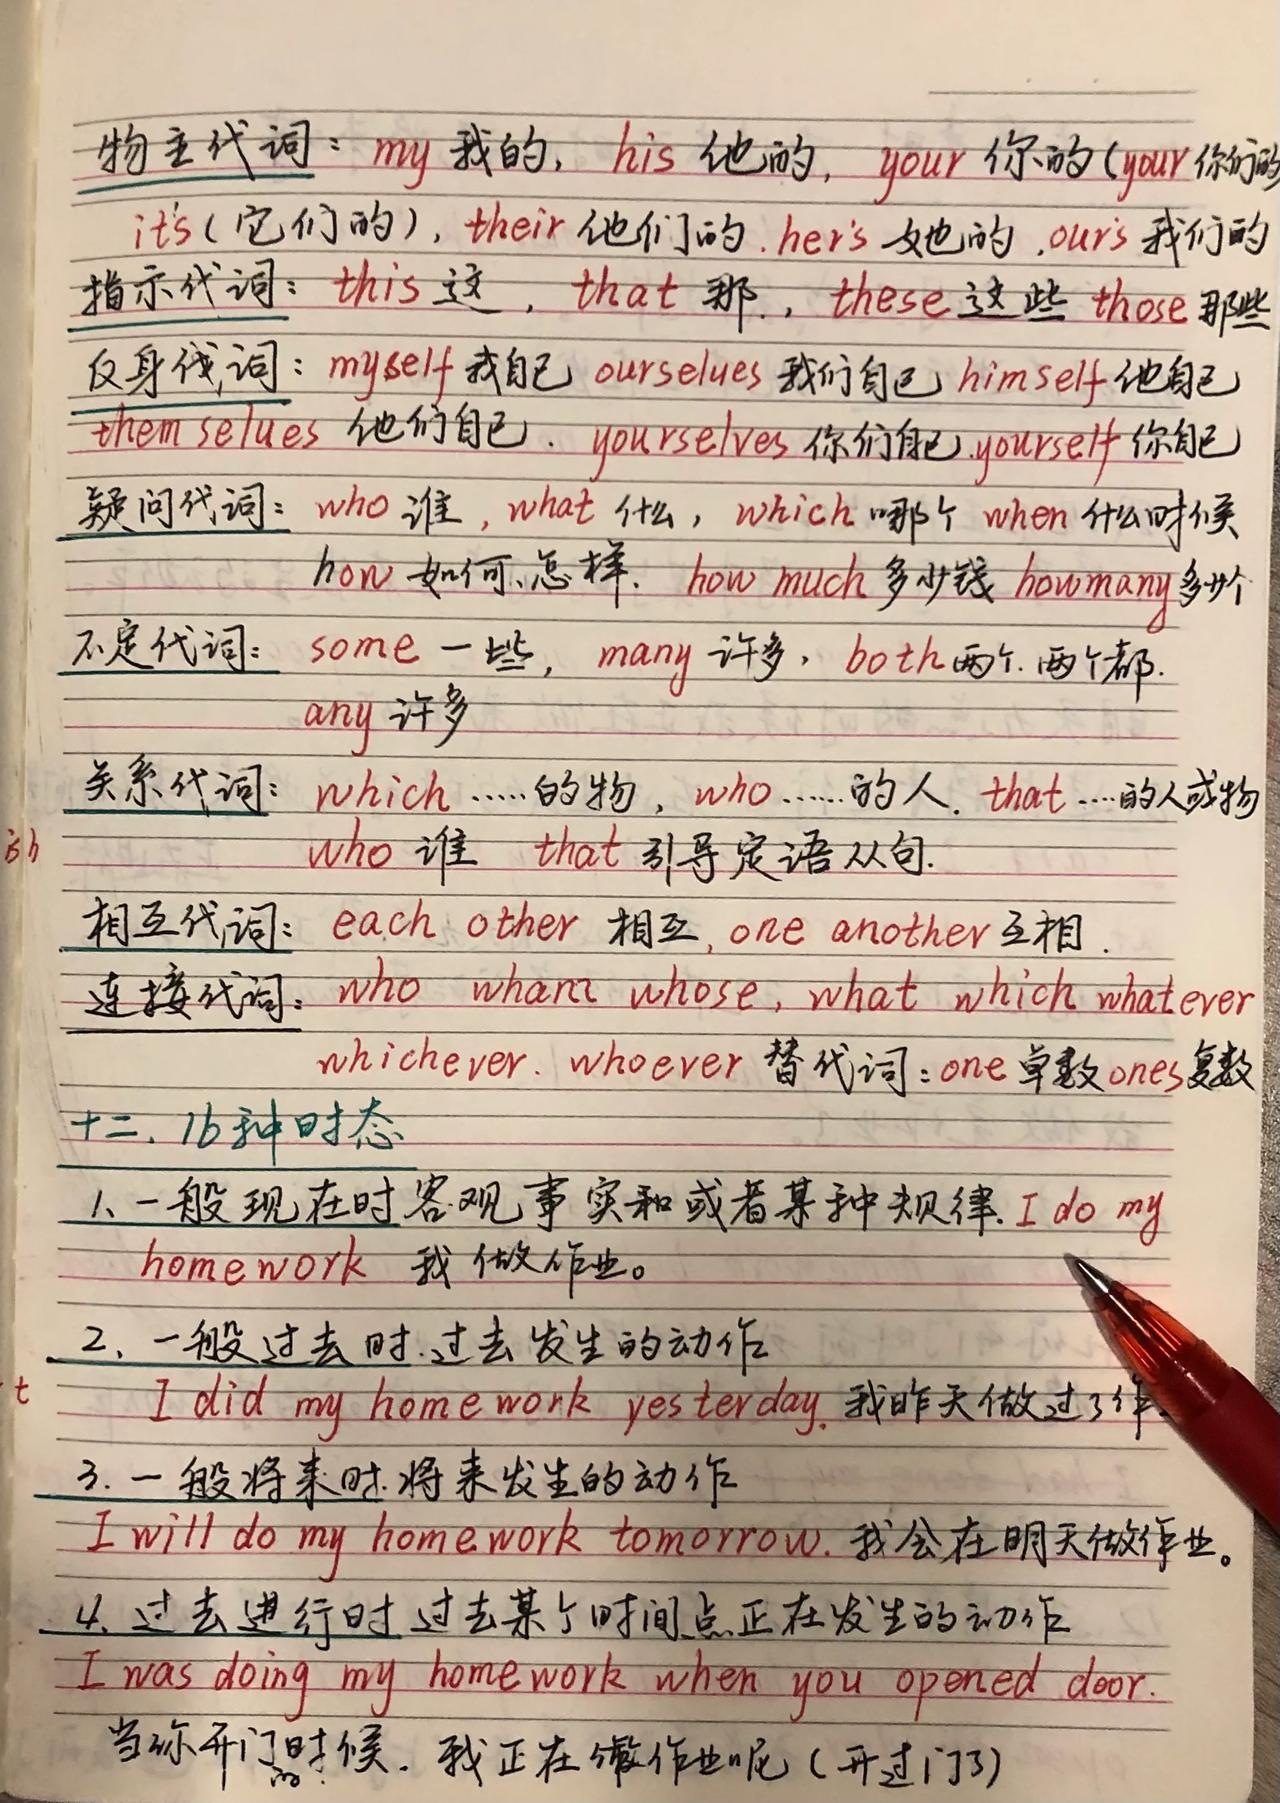 物主代词：my 我的，his 他的，your 你的（your 你们的
it's（它们的），their 他们的．her's 她的．our's 我们的
指示代词：this 这，that 那．，these 这些 those 那些
反身代词：myself 我自己 ourselues 我们自己 himself 他自己
themselues 他们自己．yourselves 你们自己．yourself 你自己
疑问代词：who 谁，what 什么，which 哪个 when 什么时候
how 如何、怎样．how much 多少钱 howmany 多少个
不定代词：some 一些，many 许多，both 两个．两个都．
any 许多
关系代词：which ……的物，who ……的人．that ……的人或物
who 谁 that 引导定语从句．
相互代词：each other 相互，one another 互相．
连接代词：who whose，what which whatever
whichever．whoever 替代词：one 单数 ones 复数
十二．16种时态
1、一般现在时客观事实和或者某种规律．I do my
homework 我做作业。
2、一般过去时．过去发生的动作
I did my homework yesterday．我昨天做过了作
3．一般将来时．将来发生的动作
I will do my homework tomorrow．我会在明天做作业。
4、过去进行时过去某个时间点正在发生的动作
I was doing my homework when you opened door．
当你开门的时候．我正在做作业呢（开过门了）